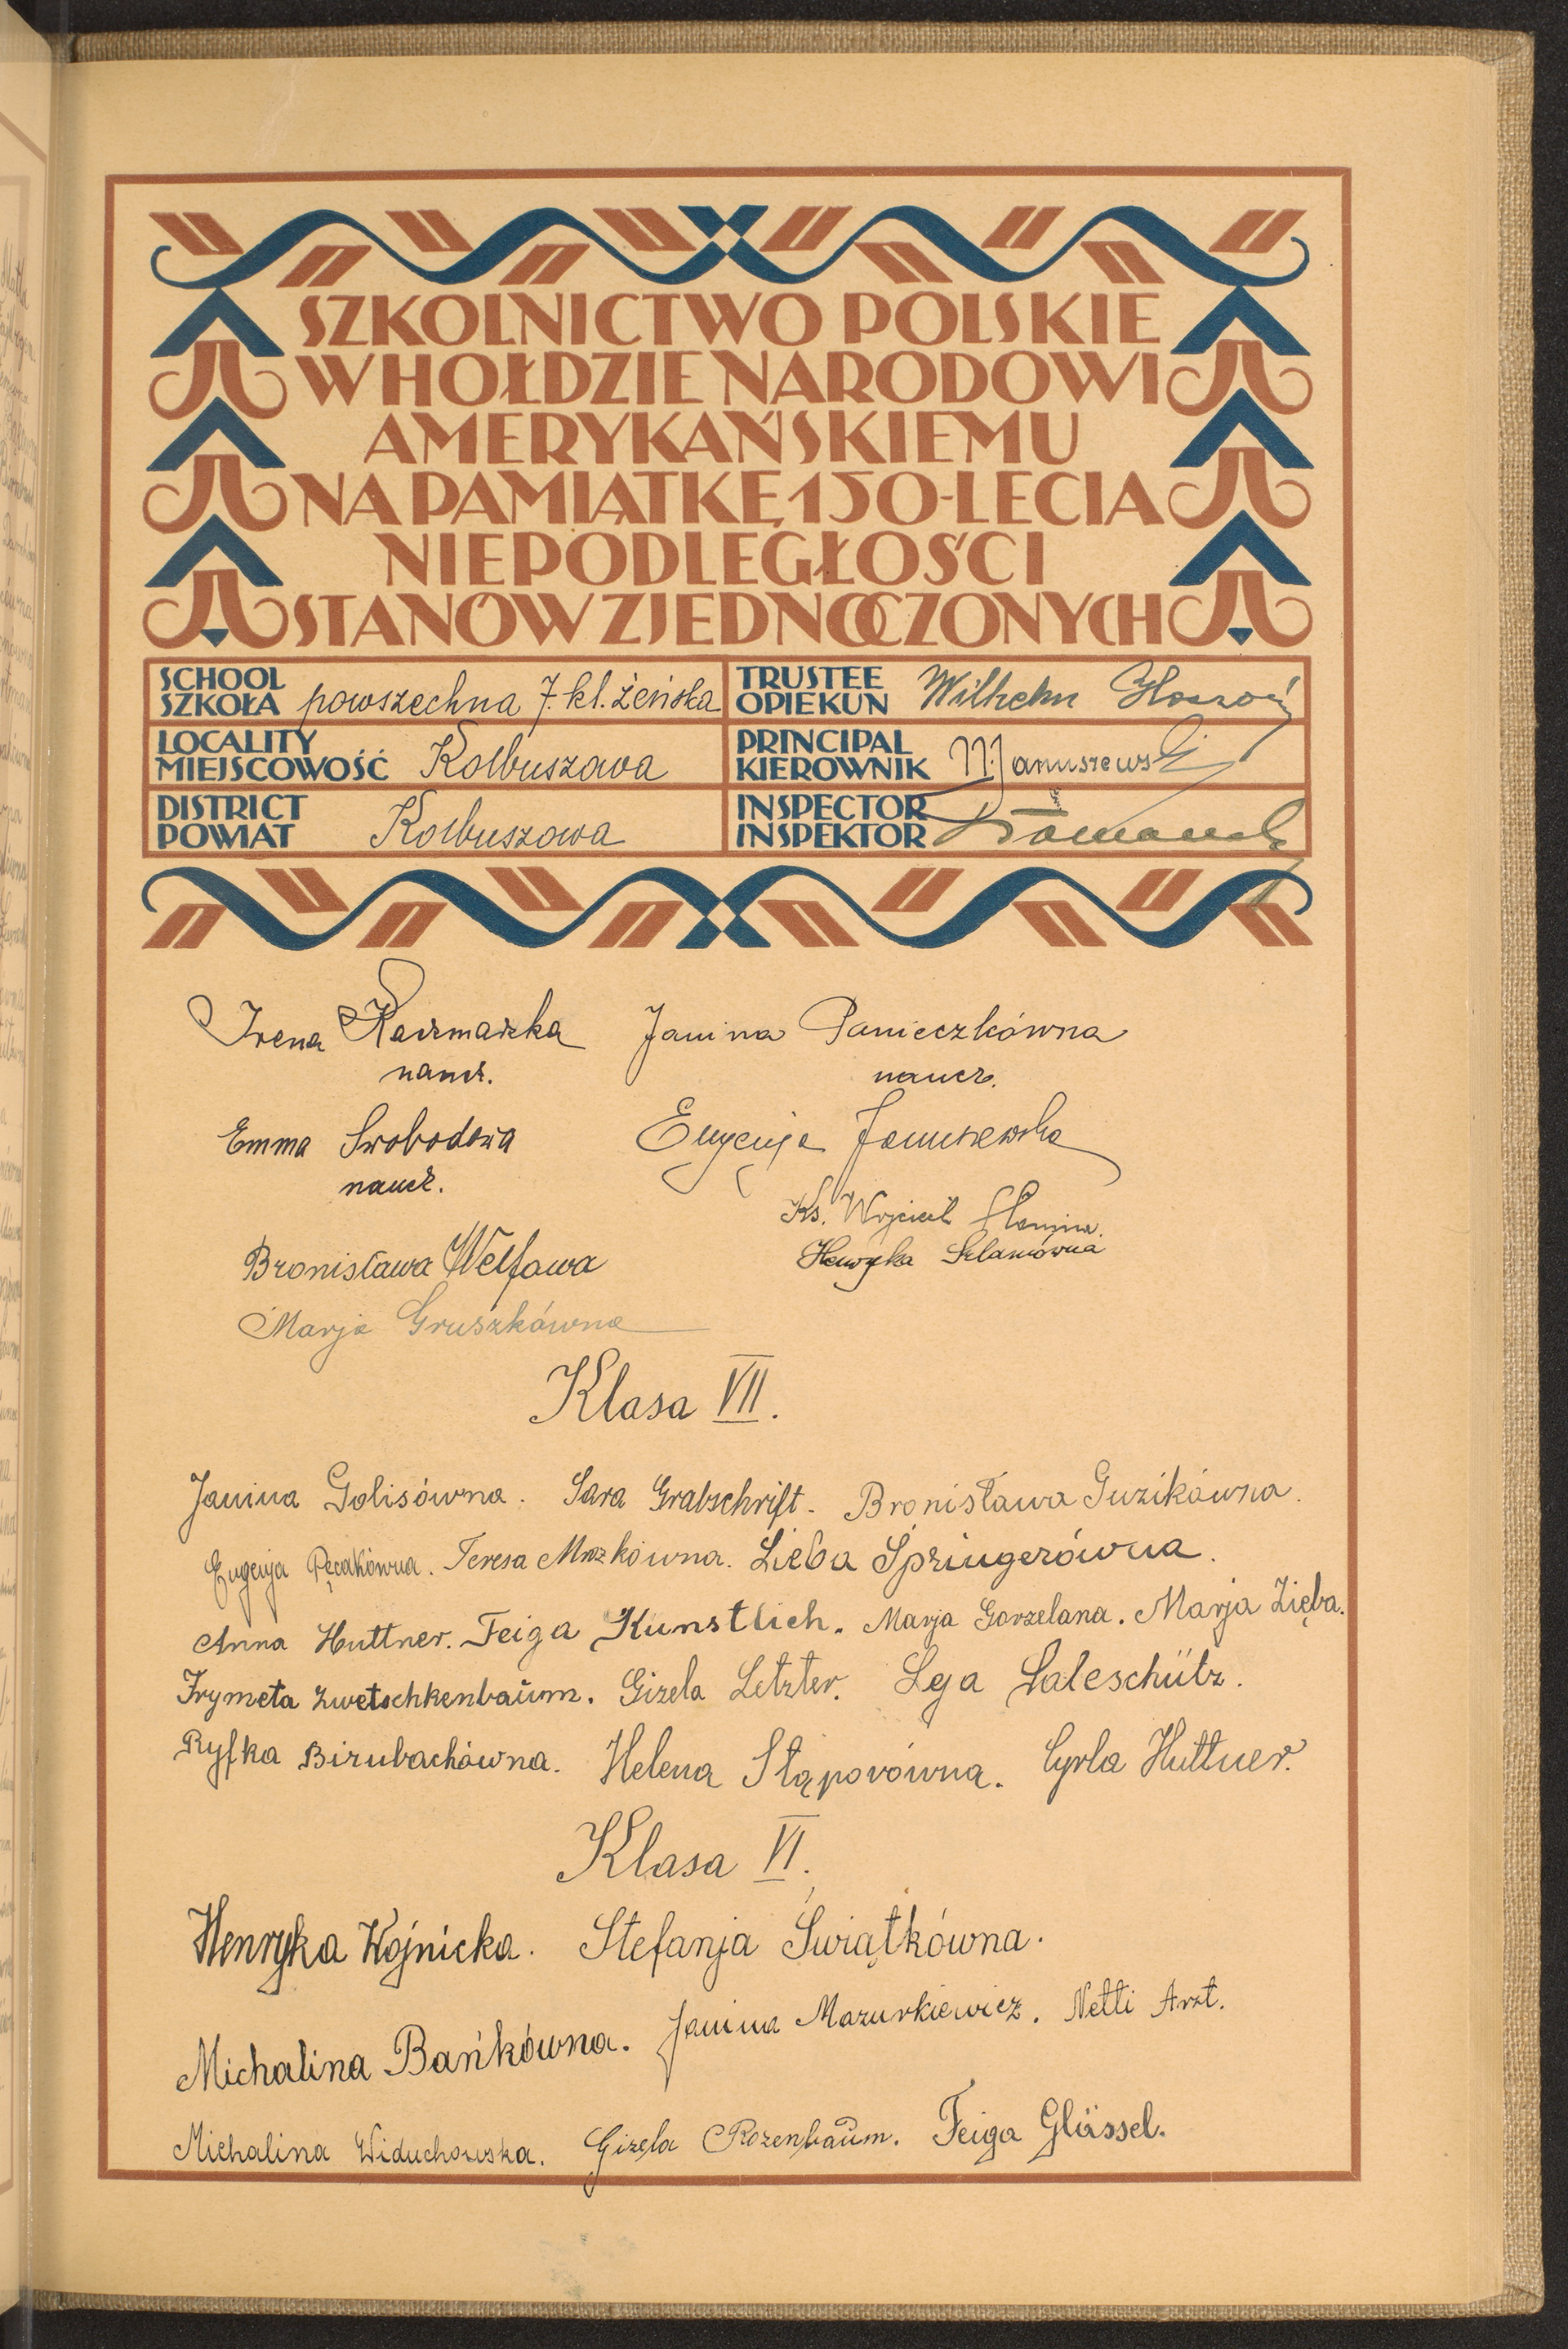 SZKOLNICTWO POLSKIE
W HOŁDZIE NARODOWI
AMERYKAŃSKIEMU
NA PAMIĄTKĘ 150-LECIA
NIEPODLEGŁOŚCI
STANÓW ZJEDNOCZONYCH
SCHOOL
SZKOŁA powszechna 7. kl. żeńska
TRUSTEE
OPIEKUN Wilhelm
LOCALITY
MIEJSCOWOŚĆ Kolbuszowa
PRINCIPAL
KIEROWNIK M. Januszewski
DISTRICT
POWIAT Kolbuszowa
INSPECTOR
INSPEKTOR
Irena Kaczmarska Janina Panieczkówna
naucz. naucz.
Emma Swobodowa Eugenja Januszewska
naucz.
Ks. Wojciech
Bronisława Welfowa Henryka Szlamówna
Marja Gruszkówna
Klasa VII.
Janina Golisówna. Sara Grabschrift. Bronisława Guzikówna.
Eugenja Pęcakówna. Teresa Mrozkówna. Lieba Springerówna.
Anna Huttner. Feiga Kunstlich. Marja Gorzelana. Marja Zięba.
Frymeta Zwetschkenbaum. Gizela Letzter. Leja Saleschütz.
Ryfka Birnbachówna. Helena Stąporówna. Cyrla Huttner.
Klasa VI.
Henryka Wójnicka. Stefanja Świątkówna.
Michalina Bańkówna. Janina Mazurkiewicz. Netti Arzt.
Michalina Widuchowska. Gizela Rozenbaum. Feiga Glässel.